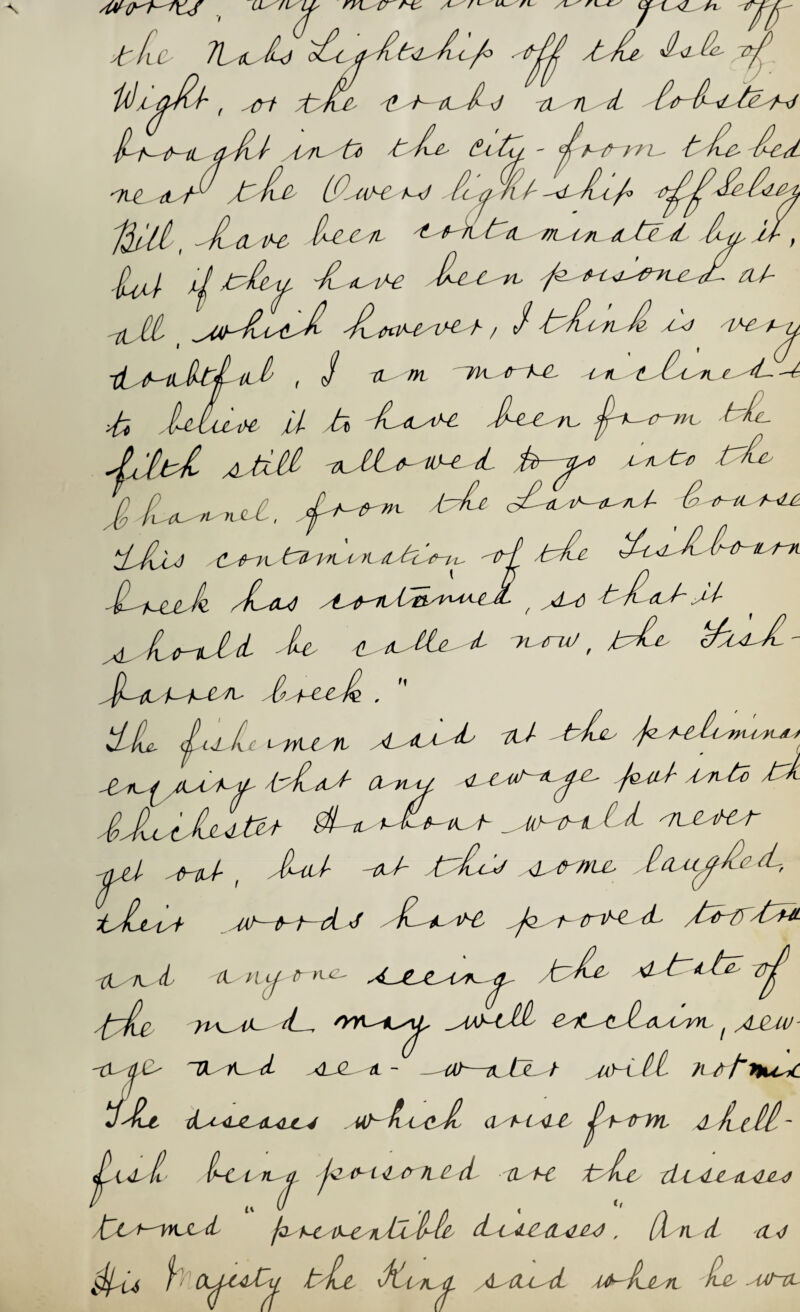 works, any more than the fish off
the Nabs Lightship off the Isle of
Wight, or the crabs and lobsters
brought into the city - from the bed
near the Owers light-ship off Selsey
Bill, have been contaminated by it,
but if they have been poisoned at
all, which however, I think is very
doubtful, I am more inclined
to believe it to have been from the
filth still allowed to go into the
Channel, from the Lavant Course
This contamination of the Fishbourn
Creek has continued, so that it
should be called now, the Fish-
barren Creek."
The fishermen said at the prelimina
enquiry that any sewage put into th
Chichester Harbour would never
get out, but at this some laughed,
their words have proved too tru
and anyone seeing the state of
the mud, may well exclaim, sew-
age and sea-water will not mix
The diseases which arise from shell-
fish being poisoned are the diseases
termed "preventible diseases." And as
His Majesty the King said when he wa